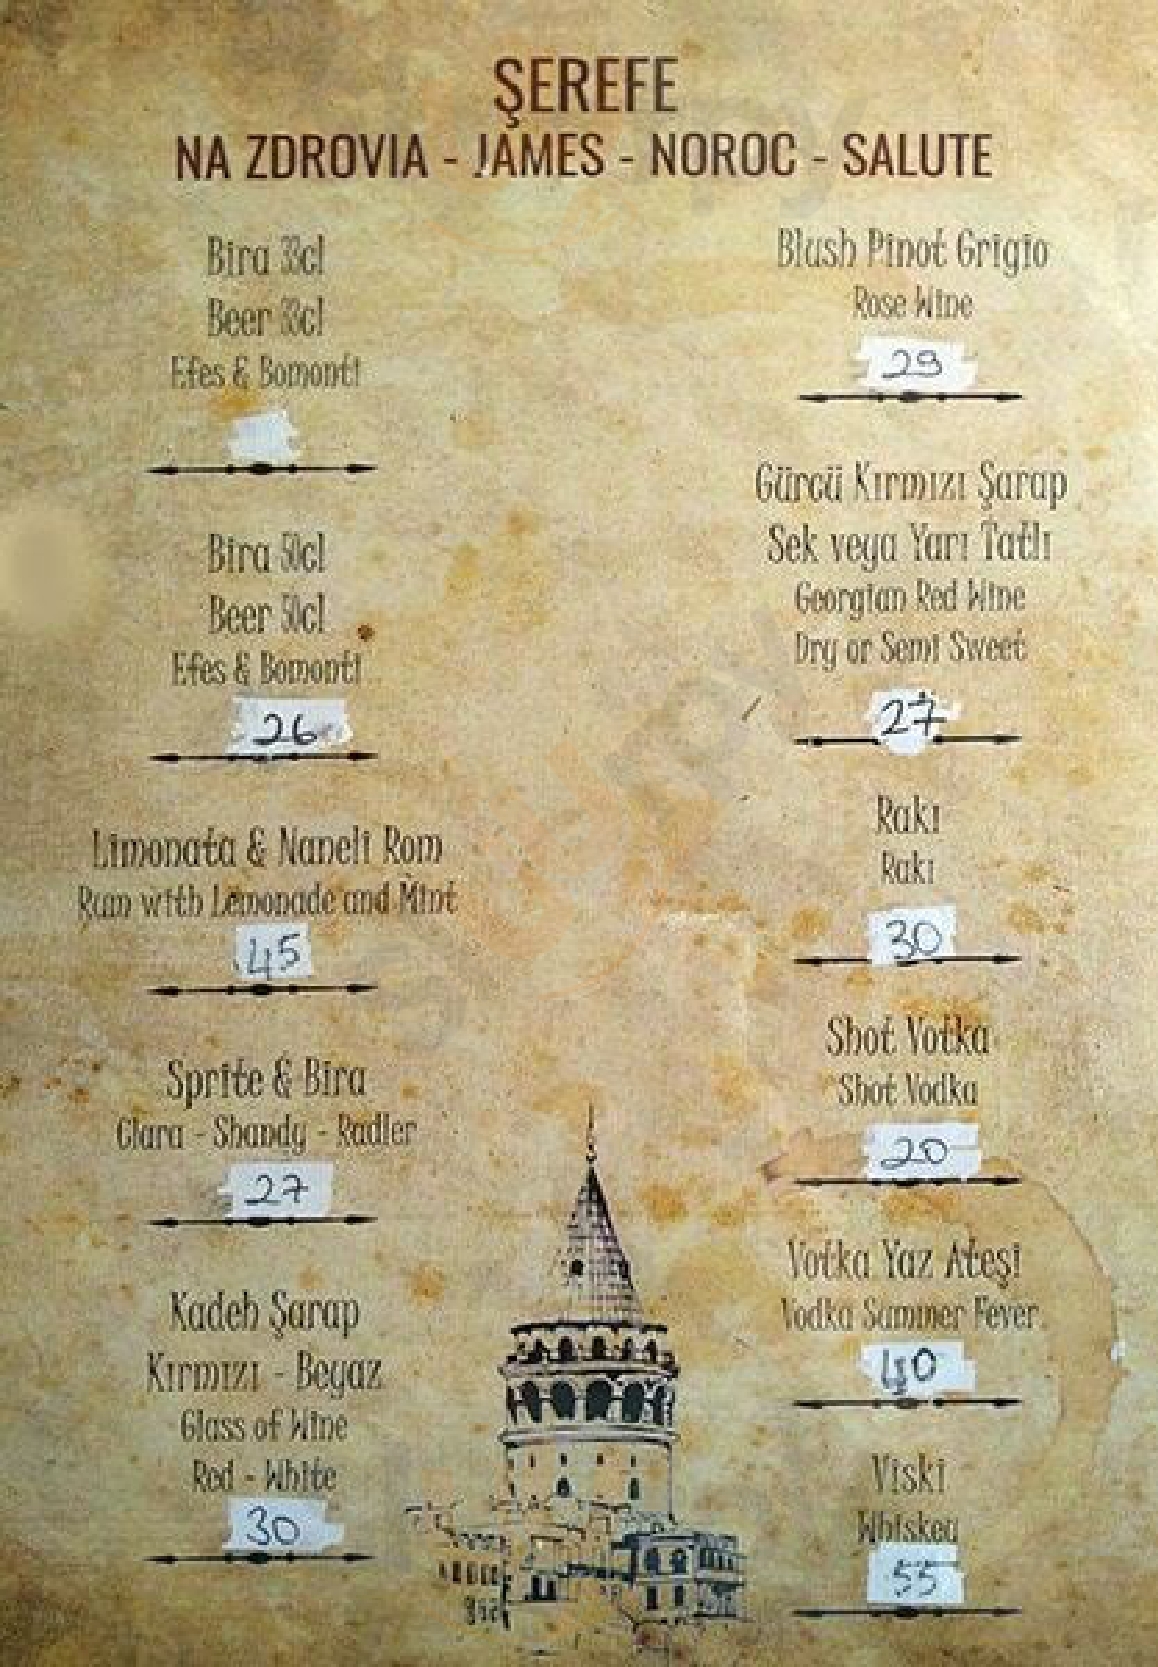 ŞEREFE
NA ZDROVIA - JAMES - NOROC - SALUTE
Bira 33cl
Beer 33cl
Efes & Bomonti
Bira 50cl
Beer 50cl
Efes & Bomonti
26
Limonata & Naneli Rom
Rum with Lemonade and Mint
45
Sprite & Bira
Clara - Shandy - Radler
27
Kadeh Şarap
Kırmızı - Beyaz
Glass of Wine
Red - White
30
Blush Pinot Grigio
Rose Wine
29
Gürcü Kırmızı Şarap
Sek veya Yarı Tatlı
Georgian Red Wine
Dry or Semi Sweet
27
Rakı
Rakı
30
Shot Votka
Shot Vodka
20
Votka Yaz Ateşi
Vodka Summer Fever
40
Viski
Whiskey
55